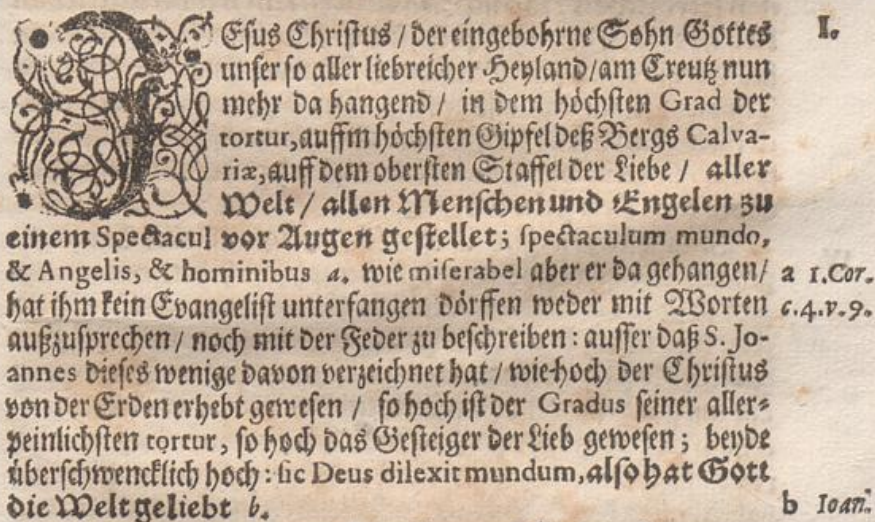 JEsus Christus / der eingebohrne Sohn Gottes I.
unser so aller liebreicher Heyland / am Creutz nun
mehr da hangend / in dem höchsten Grad der
tortur, auffm höchsten Gipfel deß Bergs Calva-
riæ, auff dem obersten Staffel der Liebe / aller
Welt / allen Menschen und Engelen zu
einem Spectacul vor Augen gestellet; spectaculum mundo,
& Angelis, & hominibus a. wie miserabel aber er da gehangen / a 1. Cor.
hat ihm kein Evangelist unterfangen dörffen weder mit Worten c. 4. v. 9.
außzusprechen / noch mit der Feder zu beschreiben: ausser daß S. Jo-
annes dieses wenige davon verzeichnet hat / wie hoch der Christus
von der Erden erhebt gewesen / so hoch ist der Gradus seiner aller-
peinlichsten tortur, so hoch das Gesteiger der Lieb gewesen; beyde
überschwencklich hoch: sic Deus dilexit mundum, also hat Gott
die Welt geliebt b. b Ioan.